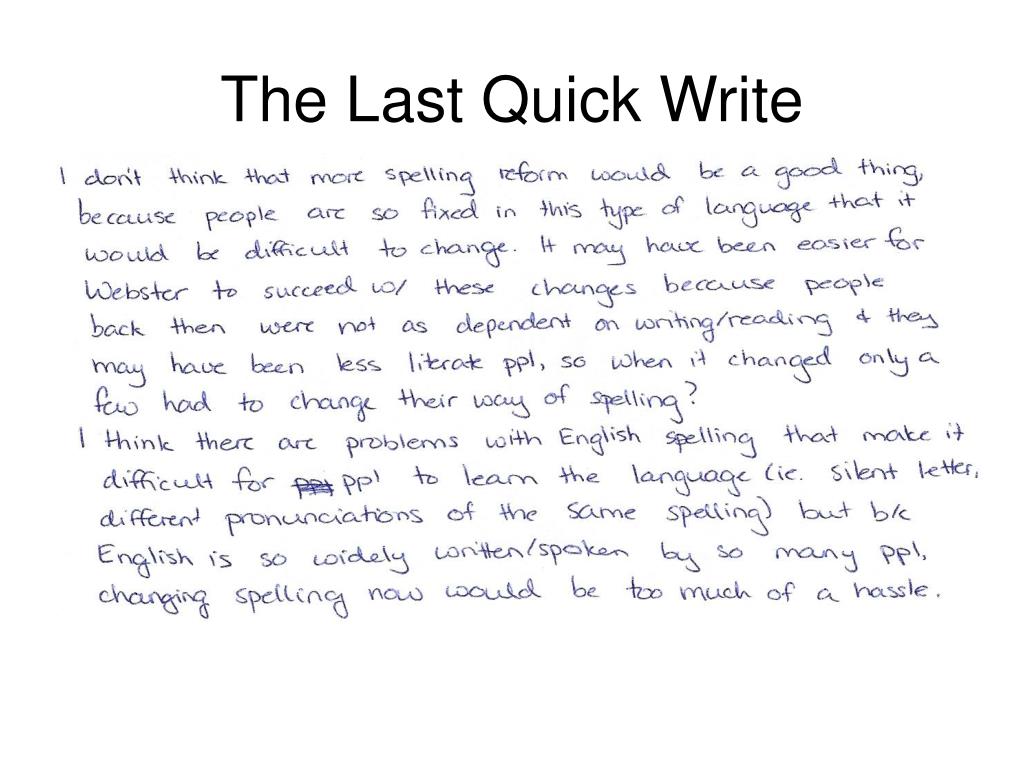 The Last Quick Write
I don't think that more spelling reform would be a good thing,
because people are so fixed in this type of language that it
would be difficult to change. It may have been easier for
Webster to succeed w/ these changes because people
back then were not as dependent on writing/reading & they
may have been less literate ppl, so when it changed only a
few had to change their way of spelling?
I think there are problems with English spelling that make it
difficult for ppl to learn the language (ie. silent letter,
different pronunciations of the same spelling) but b/c
English is so widely written/spoken by so many ppl,
changing spelling now would be too much of a hassle.